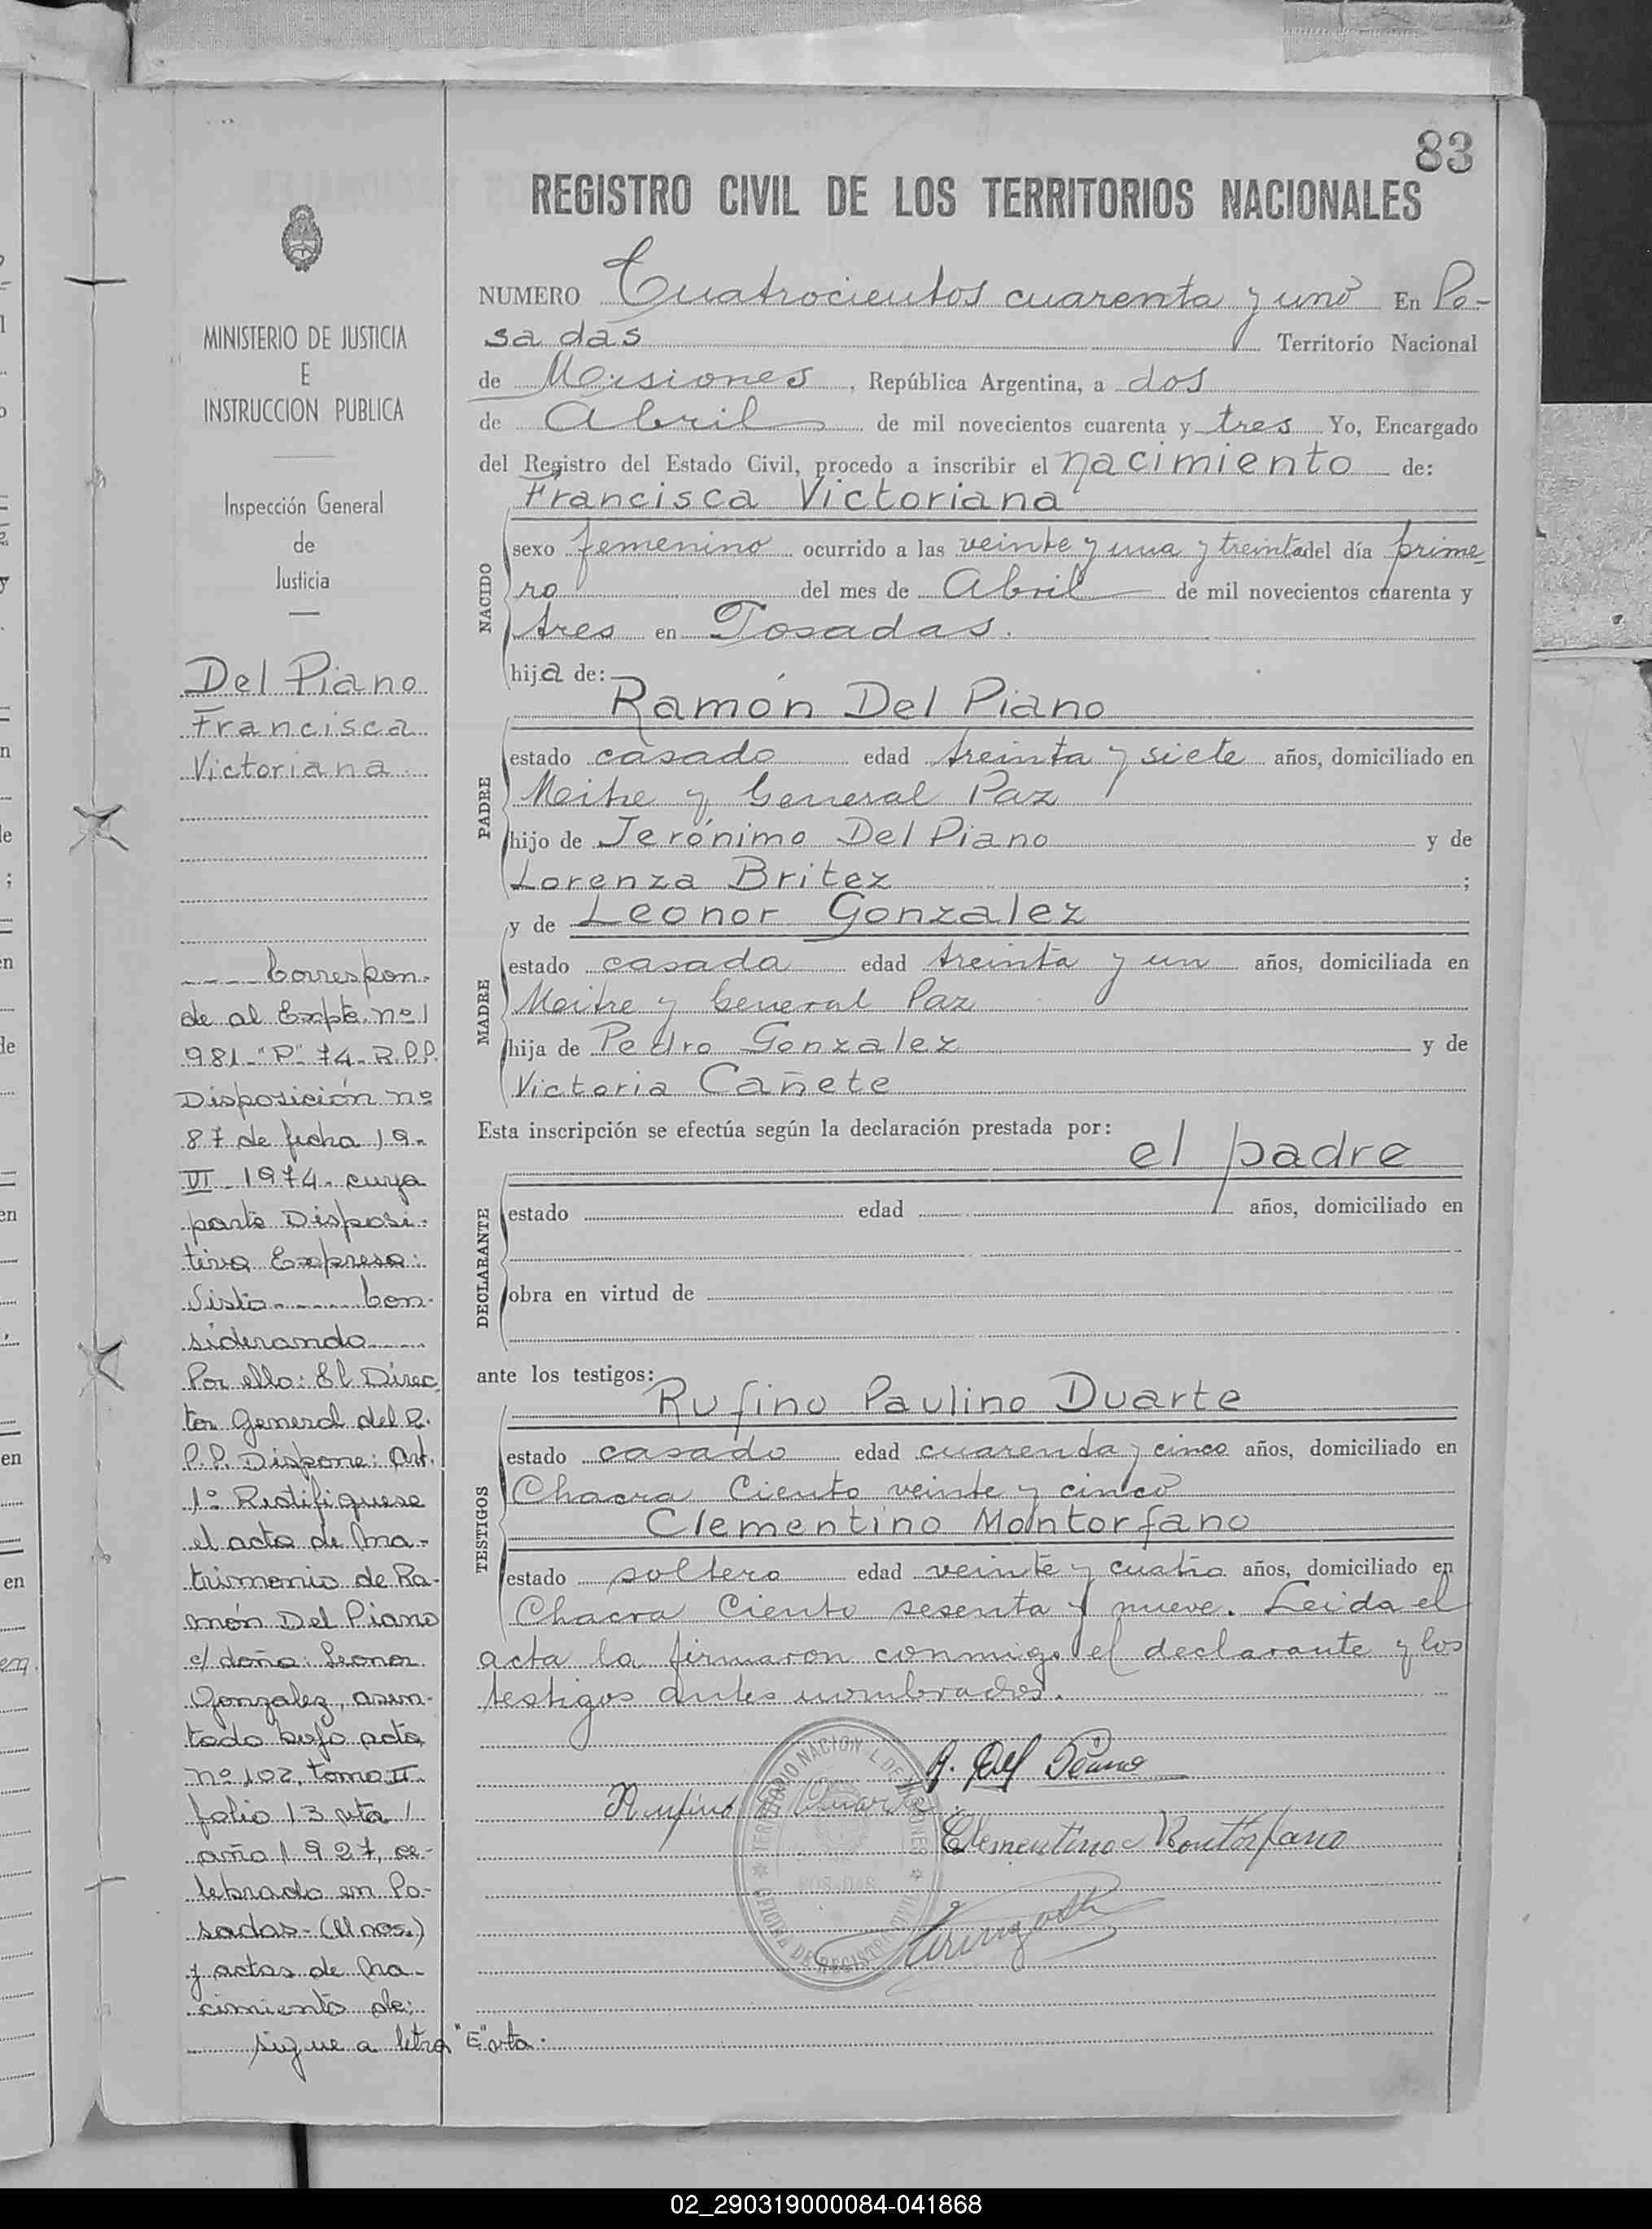 83
REGISTRO CIVIL DE LOS TERRITORIOS NACIONALES
MINISTERIO DE JUSTICIA
E
INSTRUCCION PUBLICA
Inspección General
de
Justicia
Del Piano
Francisca
Victoriana
---- Correspon-
de al Expte. nº 1
981-"P"-74-R.P.P.
Disposición nº
87 de fecha 19-
VI-1974- cuya
parte Disposi-
tiva Expresa:
Visto ------ Con-
siderando ----
Por ello: El Direc
tor General del R.
P.P. Dispone: Art.
1º Rectifiquese
el acta de Ma-
trimonio de Ra-
món Del Piano
c/ doña: Leonor
Gonzalez, asen-
tado bajo acta
nº 102, tomo II
folio 13 vta /
año 1927, ce-
lebrado en Po-
sadas-(Mnes.)
y actas de Na-
cimiento de:
sigue a letra "E" vta.
NUMERO Cuatrocientos cuarenta y uno En Po-
sadas Territorio Nacional
de Misiones, República Argentina, a dos
de Abril de mil novecientos cuarenta y tres Yo, Encargado
del Registro del Estado Civil, procedo a inscribir el nacimiento de:
Francisca Victoriana
NACIDO
sexo femenino ocurrido a las veinte y una y treinta del día prime-
ro del mes de Abril de mil novecientos cuarenta y
tres en Posadas.
hija de:
Ramón Del Piano
PADRE
estado casado edad treinta y siete años, domiciliado en
Mitre y General Paz
hijo de Jerónimo Del Piano y de
Lorenza Britez ;
y de Leonor Gonzalez
MADRE
estado casada edad treinta y un años, domiciliada en
Mitre y General Paz
hija de Pedro Gonzalez y de
Victoria Cañete
Esta inscripción se efectúa según la declaración prestada por:
el padre
DECLARANTE
estado edad años, domiciliado en
obra en virtud de
ante los testigos:
Rufino Paulino Duarte
TESTIGOS
estado casado edad cuarenta y cinco años, domiciliado en
Chacra Ciento veinte y cinco
Clementino Montorfano
estado soltero edad veinte y cuatro años, domiciliado en
Chacra Ciento sesenta y nueve. Leida el
acta la firmaron conmigo el declarante y los
testigos antes nombrados.
R. Del Piano
Rufino P. Duarte
Clementino Montorfano
TERRITORIO NACIONAL DE MISIONES
POSADAS
OFICINA DE REGISTRO CIVIL
02_290319000084-041868